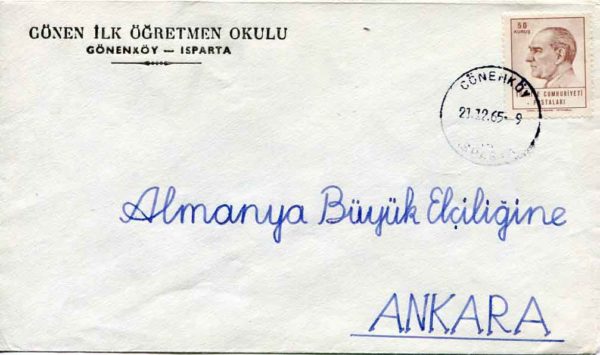 GÖNEN İLK ÖĞRETMEN OKULU
GÖNENKÖY — ISPARTA
50
KURUŞ
CUMHURİYETİ
POSTALARI
GÖNENKÖY
21.12.65-9
Almanya Büyük Elçiliğine
ANKARA